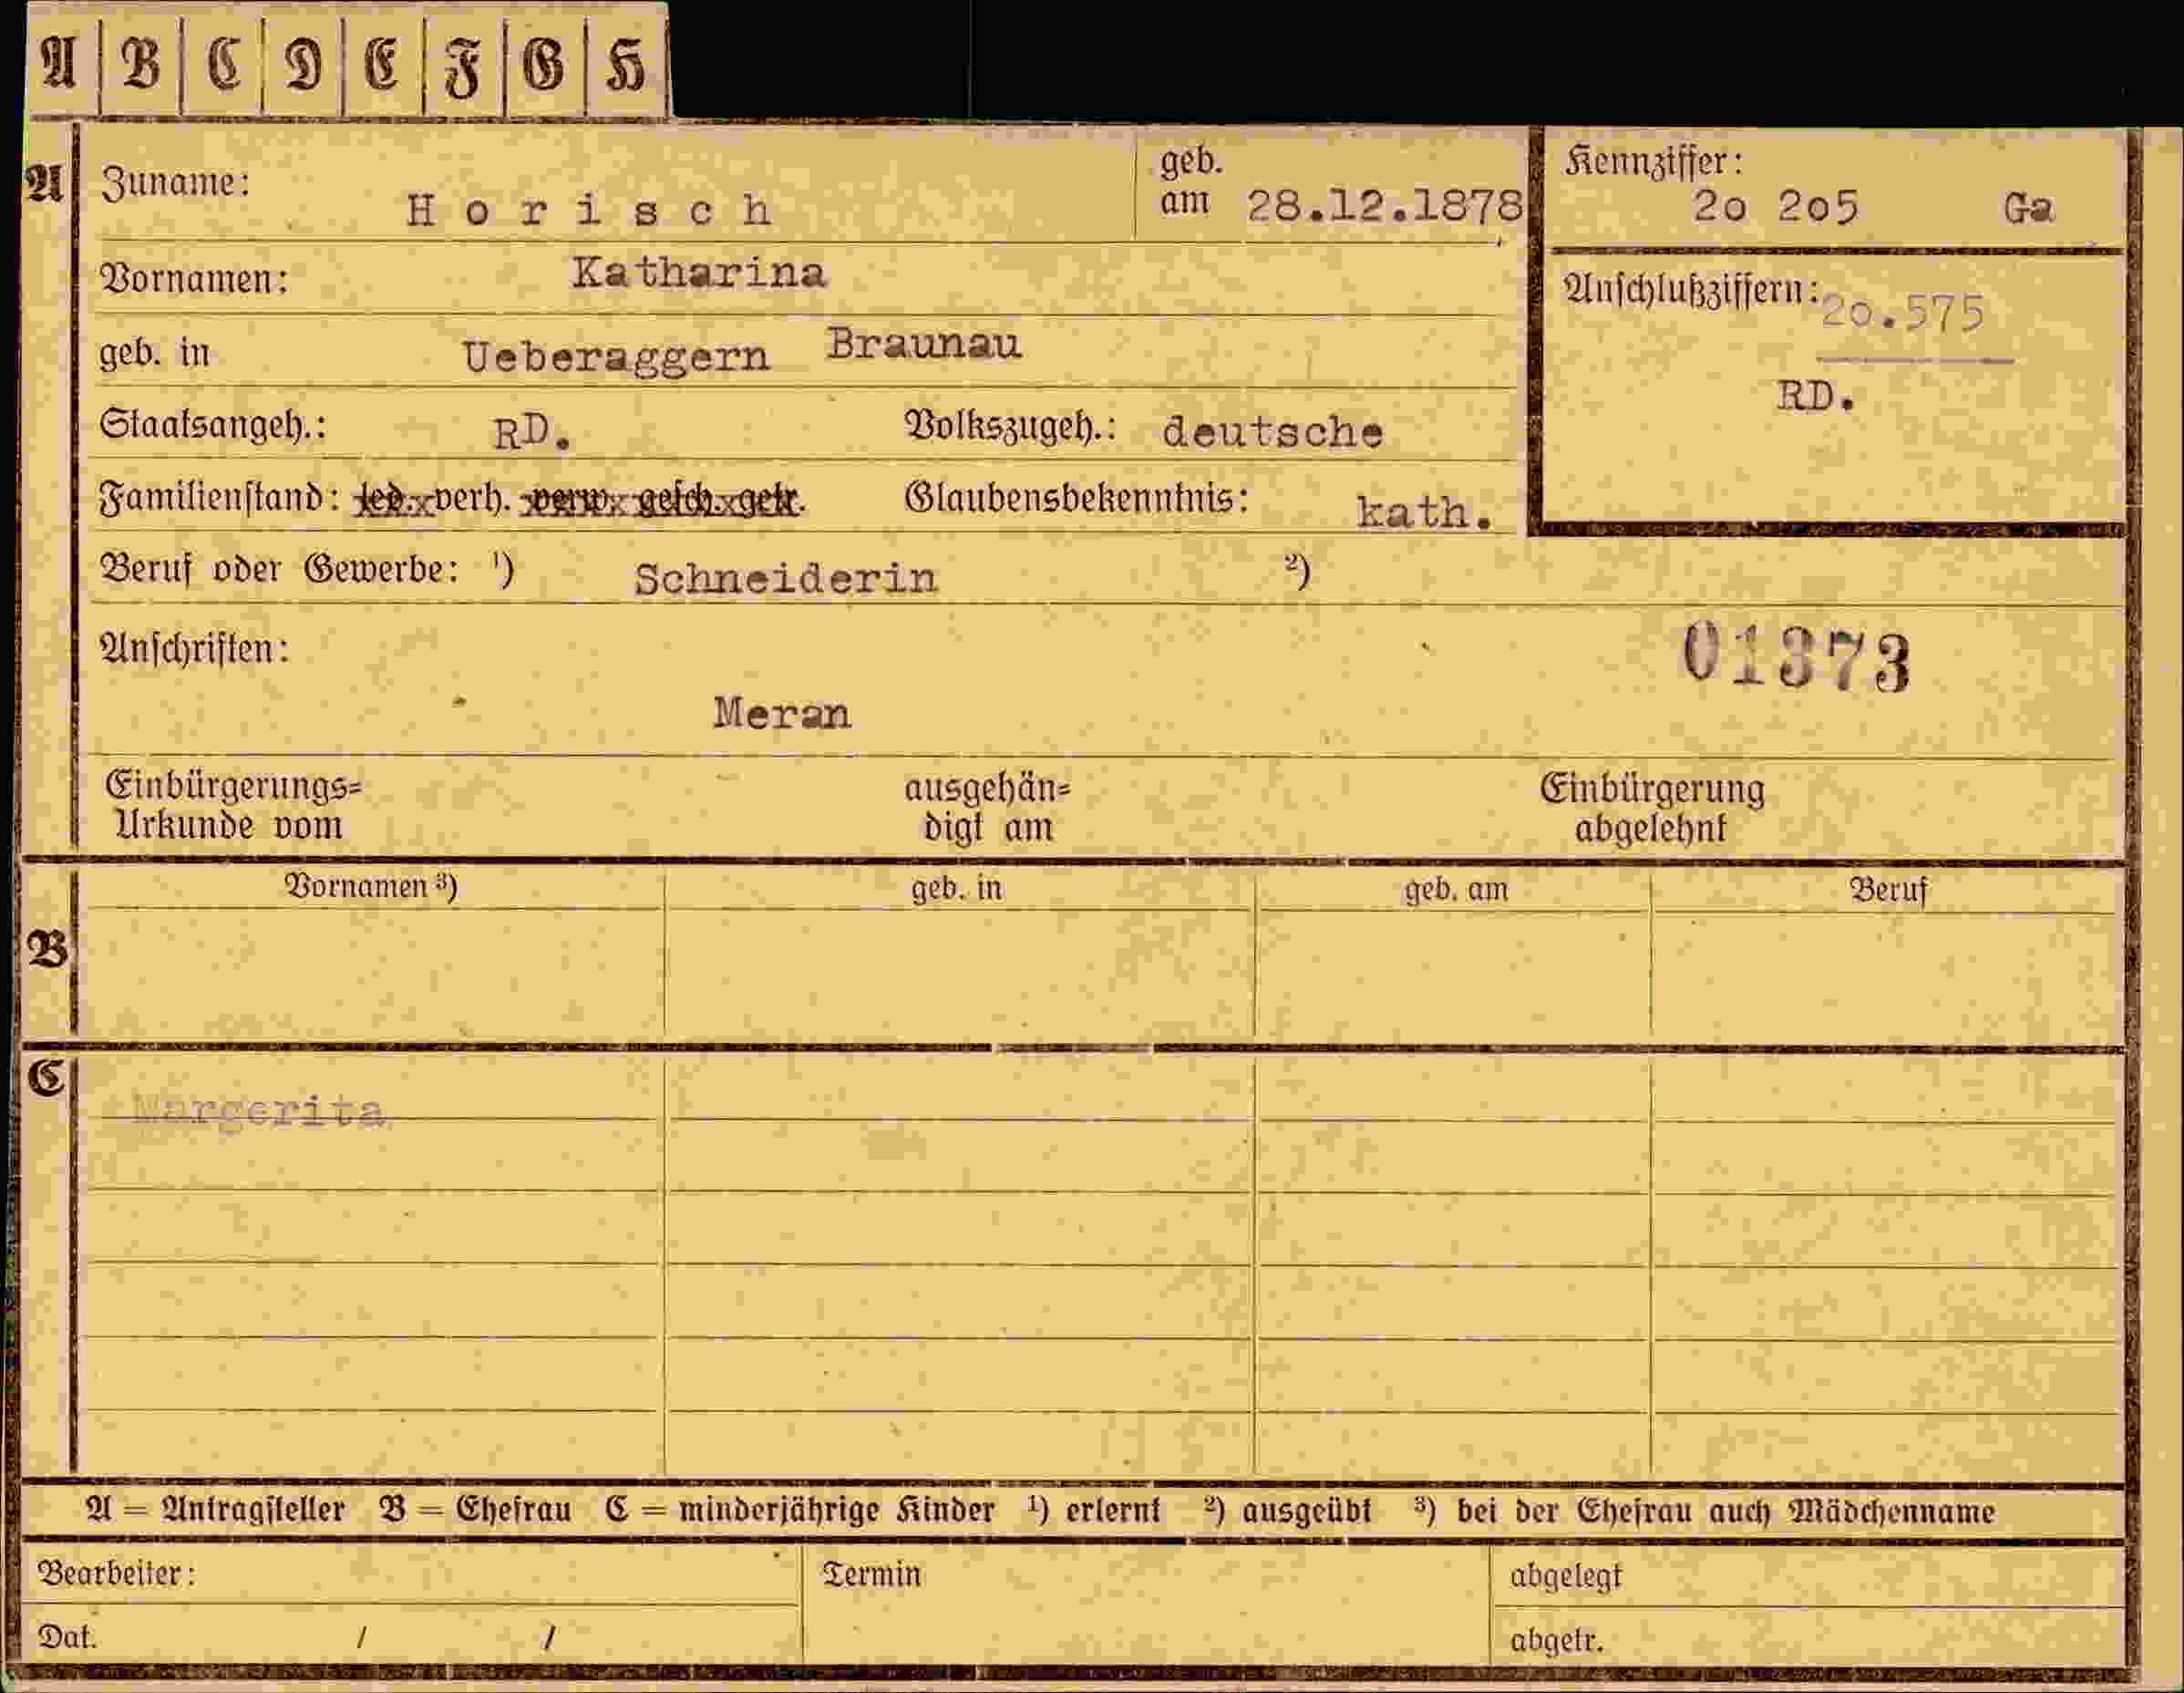 A B C D E F G H
A Zuname: Horisch geb. am 28.12.1878 Kennziffer: 2o 2o5 Ga
Vornamen: Katharina
Anschlußziffern: 2o.575
geb. in Ueberaggern Braunau
RD.
Staatsangeh.: RD. Volkszugeh.: deutsche
Familienstand: led. verh. verw. gesch. getr. Glaubensbekenntnis: kath.
Beruf oder Gewerbe: ¹) Schneiderin ²)
Anschriften: 01373
Meran
Einbürgerungs= ausgehän= Einbürgerung
Urkunde vom digt am abgelehnt
Vornamen ³) geb. in geb. am Beruf
B
C
Margerita
A = Antragsteller B = Ehefrau C = minderjährige Kinder ¹) erlernt ²) ausgeübt ³) bei der Ehefrau auch Mädchenname
Bearbeiter: Termin abgelegt
Dat. / / abgetr.